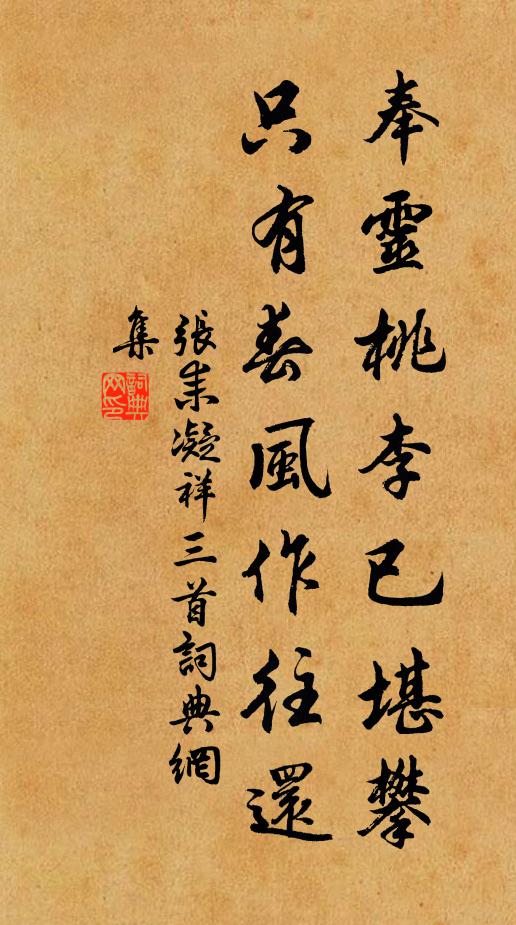 奉靈桃李已堪攀
只有春風作往還
張耒凝祥三首詞典網
集
詞典
网印